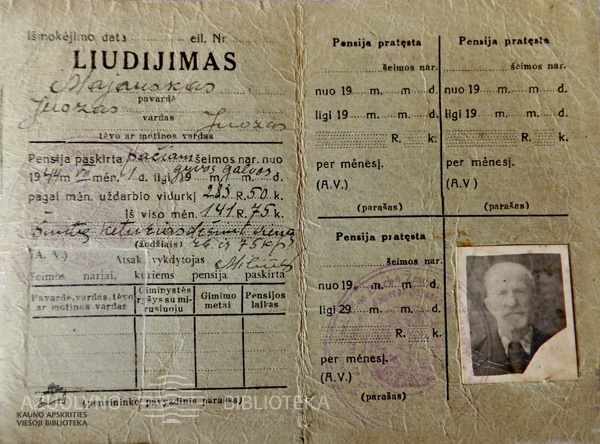 Išmokėjimo data eil. Nr.
LIUDIJIMAS
Majauskas
pavardė
Juozas
vardas
Juozas
tėvo ar motinos vardas
Pensija paskirta pačiam šeimos nar. nuo
1944 m. VII mėn. 1 d. ligi 19 gyvos galvos m. d.
pagal mėn. uždarbio vidurkį 283 R. 50 k.
Iš viso mėn. 141 R. 75 k.
Šimtas keturiasdešimt vieną
(žodžiais) rb ir 75 kp
(A. V.) Atsak. vykdytojas
Šeimos nariai, kuriems pensija paskirta
Pavardė, vardas, tėvo ar motinos vardas
Giminystės ryšys su mirusiuoju
Gimimo metai
Pensijos laikas
(pensininko pavyzdinis parašas)
Pensija pratęsta
šeimos nar.
nuo 19 m. m. d.
ligi 19 m. m. d.
R. k.
per mėnesį.
(A.V.)
(parašas)
Pensija pratęsta
šeimos nar.
nuo 19 m. m. d.
ligi 19 m. m. d.
R. k.
per mėnesį.
(A.V.)
(parašas)
Pensija pratęsta
šeimos nar.
nuo 19 m. m. d.
ligi 29 m. m. d.
R. k.
per mėnesį.
(A.V.)
(parašas)
KAUNO APSKRITIES
VIEŠOJI BIBLIOTEKA
BIBLIOTEKA